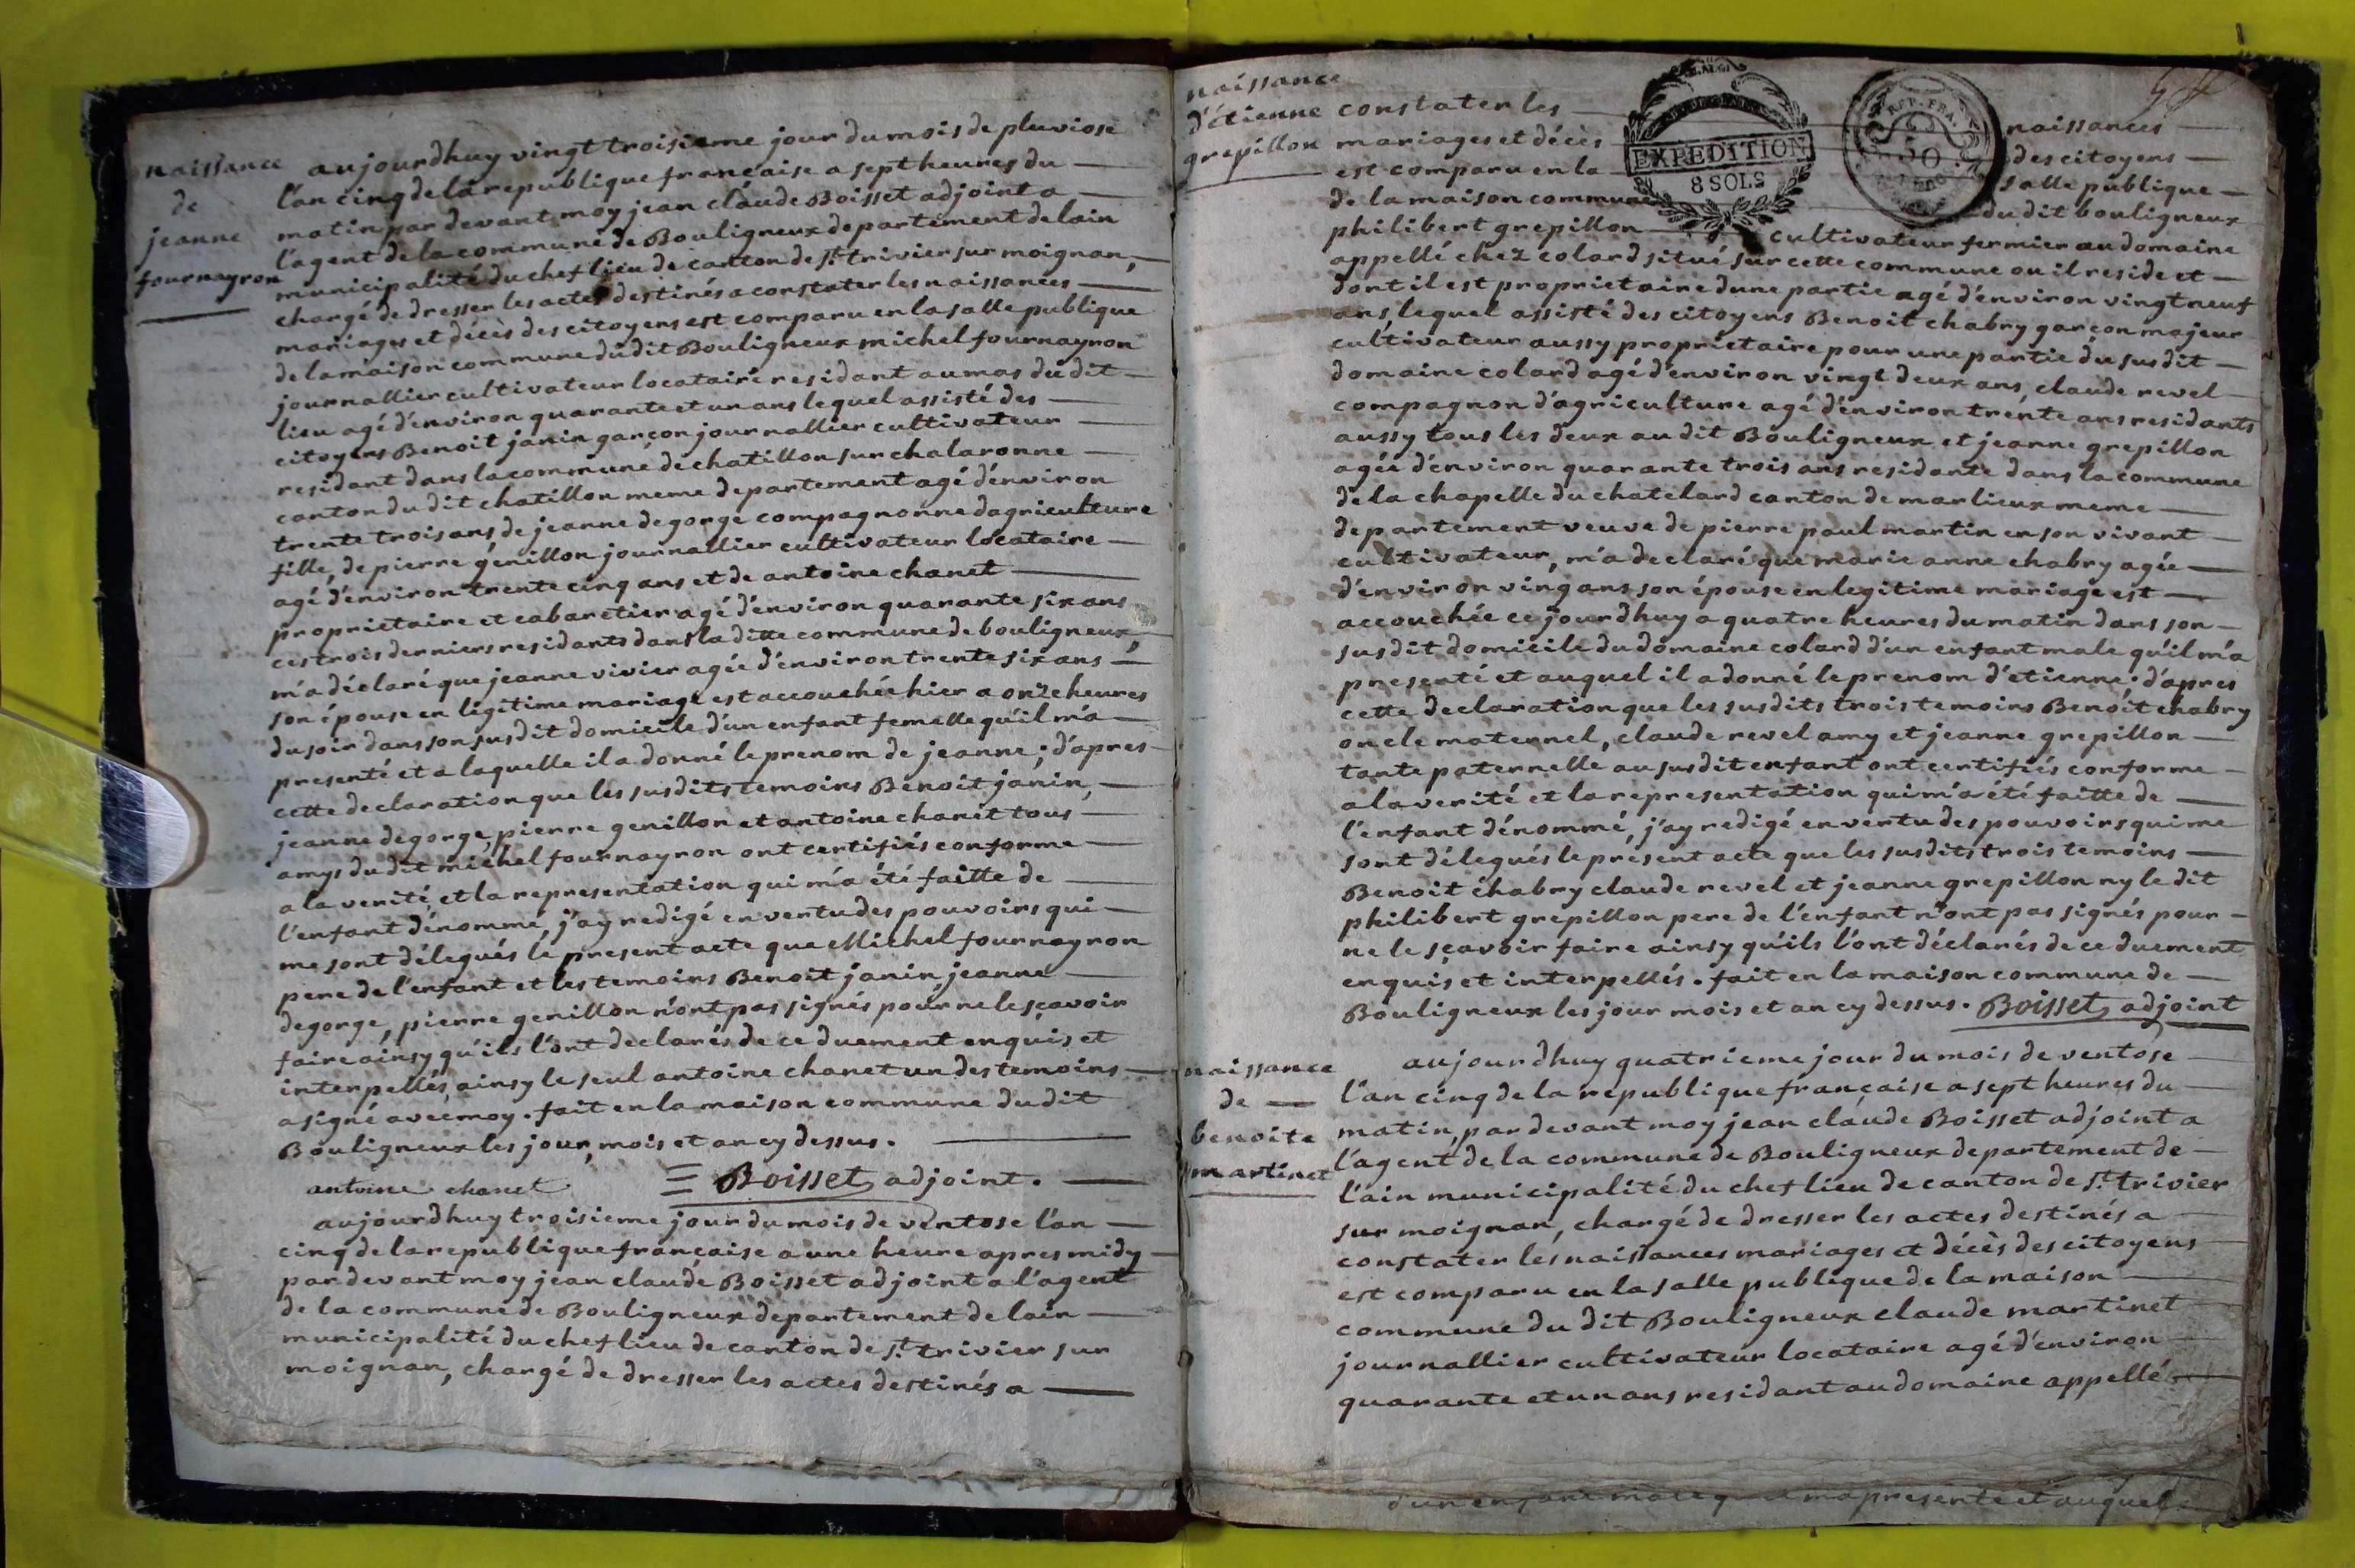 naissance
de
jeanne
fournayron
aujourdhuy vingt troisieme jour du mois de pluviose
l'an cinq de la republique française a sept heures du
matin par devant moy jean claude Boisset adjoint a
l'agent de la commune de Bouligneux departement de lain
municipalité du chef lieu de canton de st. trivier sur moignan,
chargé de dresser les actes destinés a constater les naissances
mariages et décès des citoyens est comparu en la salle publique
de la maison commune du dit Bouligneux michel fournayron
journallier cultivateur locataire residant au mas du dit
lieu agé d'environ quarante et un ans lequel assisté des
citoyens Benoit janin garçon journallier cultivateur
residant dans la commune de chatillon sur chalaronne
canton du dit chatillon meme departement agé d'environ
trente trois ans, de jeanne degorge compagnonne dagriculture
fille, de pierre génillon journallier cultivateur locataire
agé d'environ trente cinq ans et de antoine chanet
proprietaire et cabaretier agé d'environ quarante six ans
ces trois derniers residants dans la ditte commune de bouligneux,
m'a déclaré que jeanne vivier agée d'environ trente six ans
son épouse en légitime mariage est accouchée hier a onze heures
du soir dans son susdit domicile d'un enfant femelle qu'il m'a
presenté et a laquelle il a donné le prenom de jeanne ; d'apres
cette declaration que les susdits temoins Benoit janin,
jeanne degorge, pierre genillon et antoine chanet tous
amys du dit michel fournayron ont certifiés conforme
a la verité, et la representation qui m'a été faitte de
l'enfant dénommé, j'ay redigé en vertu des pouvoirs qui
me sont délegués le present acte que Michel fournayron
pere de l'enfant et les temoins Benoit janin, jeanne
degorge, pierre genillon n'ont pas signés pour ne le sçavoir
faire ainsy qu'ils l'ont declarés de ce duement enquis et
interpellés, ainsy le seul antoine chanet un des temoins
a signé avec moy. fait en la maison commune du dit
Bouligneux les jour, mois et an cy dessus.
antoine chanet Boisset adjoint.
aujourdhuy troisieme jour du mois de ventose l'an
cinq de la republique française a une heure apres midy
par devant moy jean claude Boisset adjoint a l'agent
de la commune de Bouligneux departement de lain
municipalité du chef lieu de canton de st. trivier sur
moignan, chargé de dresser les actes destinés a
naissance
d'étienne
grepillon
EXPEDITION
8 SOLS
REP. FRA.
50
constater les naissances
mariages et décès des citoyens
est comparu en la salle publique
de la maison commune du dit bouligneux
philibert grepillon cultivateur fermier au domaine
appellé chez colard situé sur cette commune ou il reside et
dont il est proprietaire dune partie agé d'environ vingt neuf
ans, lequel assisté des citoyens Benoit chabry garçon majeur
cultivateur aussy proprietaire pour une partie du susdit
domaine colard agé d'environ vingt deux ans, claude revel
compagnon d'agriculture agé d'environ trente ans residants
aussy tous les deux au dit Bouligneux et jeanne grepillon
agée d'environ quarante trois ans residante dans la commune
de la chapelle du chatelard canton de marlieux meme
departement veuve de pierre paul martin en son vivant
cultivateur, m'a declaré que marie anne chabry agée
d'environ ving ans son épouse en legitime mariage est
accouchée ce jourdhuy a quatre heures du matin dans son
susdit domicile du domaine colard d'un enfant male qu'il m'a
presenté et auquel il a donné le prenom d'etienne. d'apres
cette declaration que les susdits trois temoins Benoit chabry
oncle maternel, claude revel amy et jeanne grepillon
tante paternelle au susdit enfant ont certifiés conforme
a la verité et la representation qui m'a eté faitte de
l'enfant dénommé, j'ay redigé en vertu des pouvoirs qui me
sont délegués le présent acte que les susdits trois temoins
Benoit chabry claude revel et jeanne grepillon ny le dit
philibert grepillon pere de l'enfant n'ont pas signés pour
ne le sçavoir faire ainsy qu'ils l'ont déclarés de ce duement
enquis et interpellés. fait en la maison commune de
Bouligneux les jour mois et an cy dessus. Boisset adjoint
naissance
de
benoite
martinet
aujourdhuy quatrieme jour du mois de ventose
l'an cinq de la republique française a sept heures du
matin, par devant moy jean claude Boisset adjoint a
l'agent de la commune de Bouligneux departement de
l'ain municipalité du chef lieu de canton de st. trivier
sur moignan, chargé de dresser les actes destinés a
constater les naissances mariages et décès des citoyens
est comparu en la salle publique de la maison
commune du dit Bouligneux claude martinet
journallier cultivateur locataire agé d'environ
quarante et un ans residant au domaine appellé
d'un enfant male m'a presenté et auquel